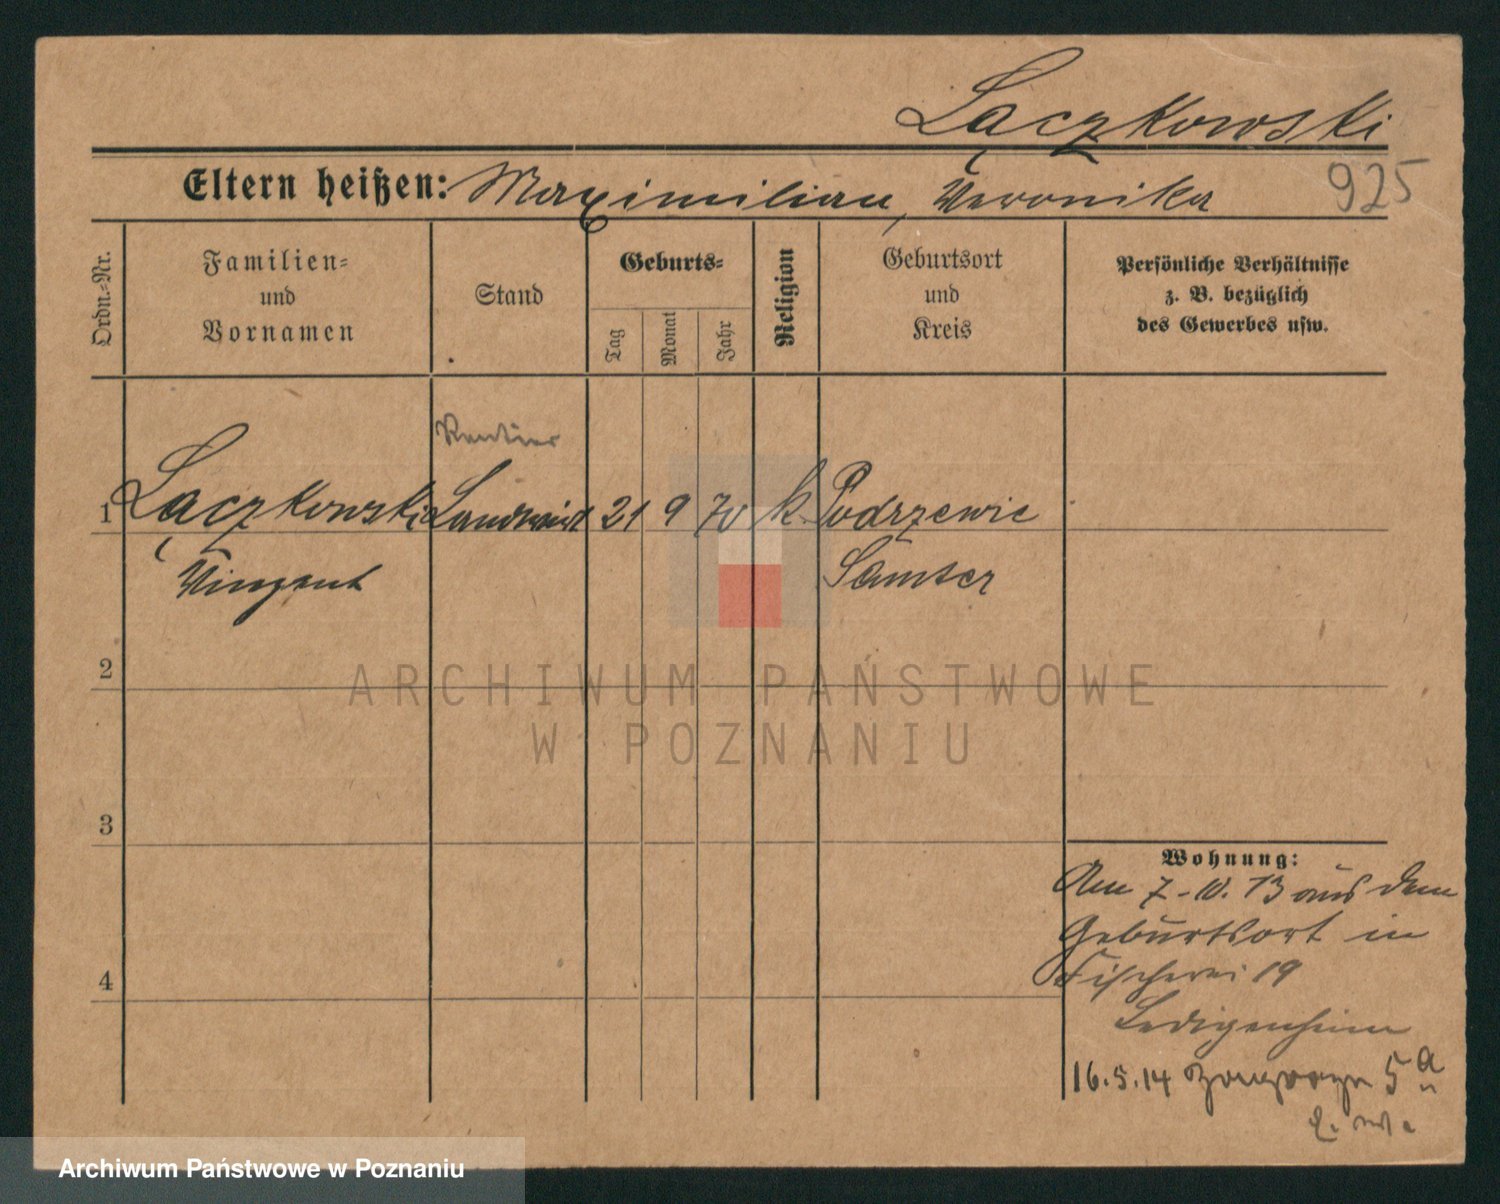 Łączkowski
Eltern heißen: Maximilian, Weronika
925
Ordn.-Nr.
Familien-
und
Vornamen
Stand
Geburts-
Tag
Monat
Jahr
Religion
Geburtsort
und
Kreis
Persönliche Verhältnisse
z. B. bezüglich
des Gewerbes usw.
Rentier
1 Łączkowski Landwirt 21 9 70 k. Podrzewie
Vinzent Samter
2
ARCHIWUM PAŃSTWOWE
W POZNANIU
3
Wohnung:
Am 7.-10. 13 aus dem
Geburtsort in
Fischerei 19
4
Ledigenheim
16.5.14 5 a
Archiwum Państwowe w Poznaniu